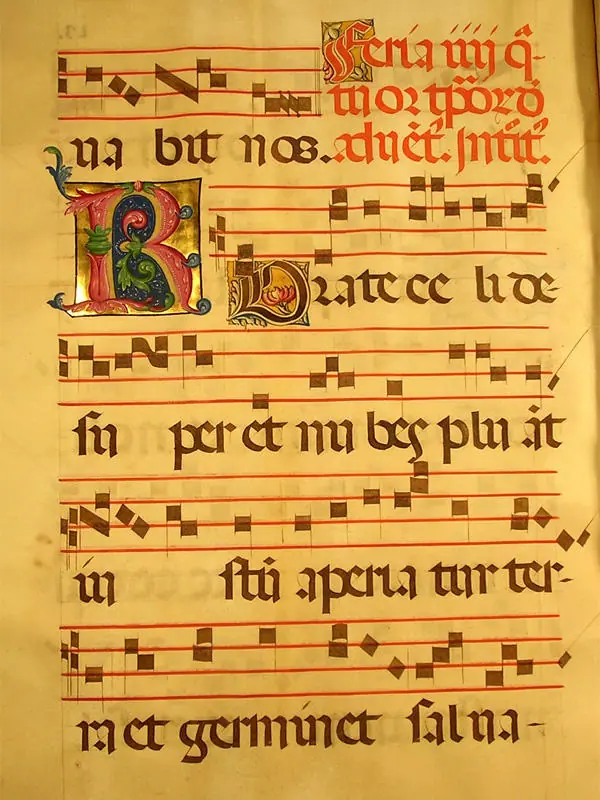 Feria iiij q̄-
tuor tp̄orū
na bit nos. aduēt'. Intīt'.
R O rate ce li de-
su per et nu bes plu āt
iu stū aperia tur ter-
ra et germinet salua-